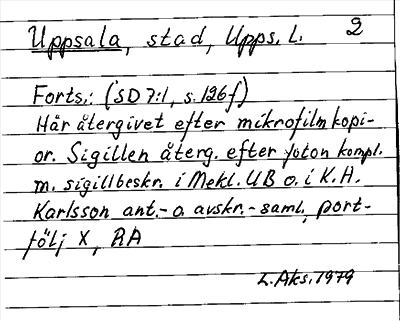 Uppsala, stad, Upps. L. 2
Forts.: (SD 7:1, s. 126f)
Här återgivet efter mikrofilmkopi-
or. Sigillen återg. efter foton kompl.
m. sigillbeskr. i Mekl. UB o. i K.H.
Karlsson ant.- o. avskr.- saml., port-
följ X, RA
L. Aks. 1979